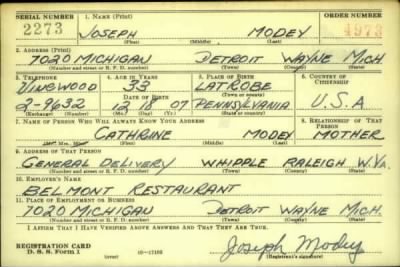 SERIAL NUMBER 1. NAME (Print) ORDER NUMBER
2273 JOSEPH MODEY 4973
(First) (Middle) (Last)
2. ADDRESS (Print)
7020 MICHIGAN DETROIT WAYNE MICH.
(Number and street or R. F. D. number) (Town) (County) (State)
3. TELEPHONE 4. AGE IN YEARS 5. PLACE OF BIRTH 6. COUNTRY OF CITIZENSHIP
VINEWOOD 33 LATROBE
DATE OF BIRTH (Town or county)
2-9632 12 18 07 PENNSYLVANIA U.S.A
(Exchange) (Number) (Mo.) (Day) (Yr.) (State or country)
7. NAME OF PERSON WHO WILL ALWAYS KNOW YOUR ADDRESS 8. RELATIONSHIP OF THAT PERSON
CATHRINE MODEY MOTHER
(First) (Middle) (Last)
9. ADDRESS OF THAT PERSON
GENERAL DELIVERY WHIPPLE RALEIGH W.VA.
(Number and street or R. F. D. number) (Town) (County) (State)
10. EMPLOYER'S NAME
BELMONT RESTAURANT
11. PLACE OF EMPLOYMENT OR BUSINESS
7020 MICHIGAN DETROIT WAYNE MICH.
(Number and street or R. F. D. number) (Town) (County) (State)
I AFFIRM THAT I HAVE VERIFIED ABOVE ANSWERS AND THAT THEY ARE TRUE.
REGISTRATION CARD
D. S. S. Form 1 Joseph Modey
(over) (Registrant's signature)